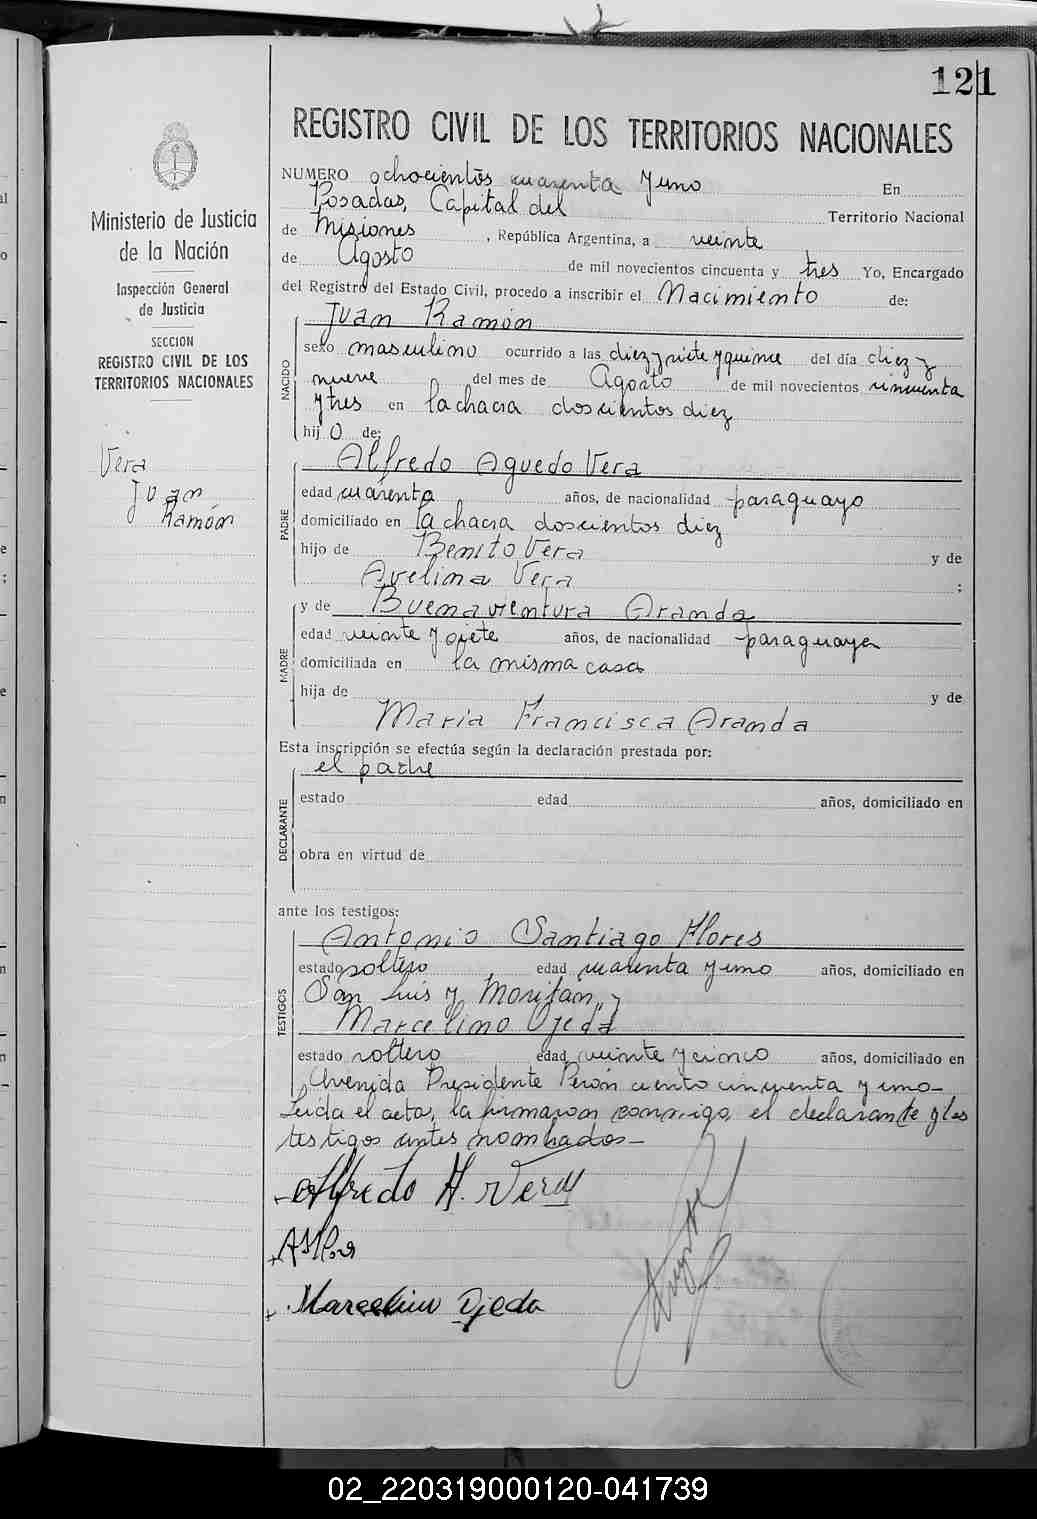 121
REGISTRO CIVIL DE LOS TERRITORIOS NACIONALES
Ministerio de Justicia
de la Nación
Inspección General
de Justicia
SECCION
REGISTRO CIVIL DE LOS
TERRITORIOS NACIONALES
Vera
Juan
Ramón
NUMERO ochocientos cuarenta y uno En
Posadas, Capital del Territorio Nacional
de Misiones, República Argentina, a veinte
de Agosto de mil novecientos cincuenta y tres Yo, Encargado
del Registro del Estado Civil, procedo a inscribir el Nacimiento de:
Juan Ramón
NACIDO
sexo masculino ocurrido a las diez y siete y quince del día diez y
nueve del mes de Agosto de mil novecientos cincuenta
y tres en la chacra doscientos diez
hijo de:
Alfredo Aguedo Vera
PADRE
edad cuarenta años, de nacionalidad paraguayo
domiciliado en la chacra doscientos diez
hijo de Benito Vera y de
Avelina Vera ;
y de Buenaventura Aranda
MADRE
edad veinte y siete años, de nacionalidad paraguaya
domiciliada en la misma casa
hija de y de
Maria Francisca Aranda
Esta inscripción se efectúa según la declaración prestada por:
el padre
DECLARANTE
estado edad años, domiciliado en
obra en virtud de
ante los testigos:
Antonio Santiago Flores
TESTIGOS
estado soltero, edad cuarenta y uno años, domiciliado en
San Luis y y
Marcelino Ojeda
estado soltero edad veinte y cinco años, domiciliado en
Avenida Presidente Perón ciento cincuenta y uno-
Leida el acta, la firmaron conmigo, el declarante y los
testigos antes nombrados-
Alfredo A. Vera
Marcelino Ojeda
02_220319000120-041739